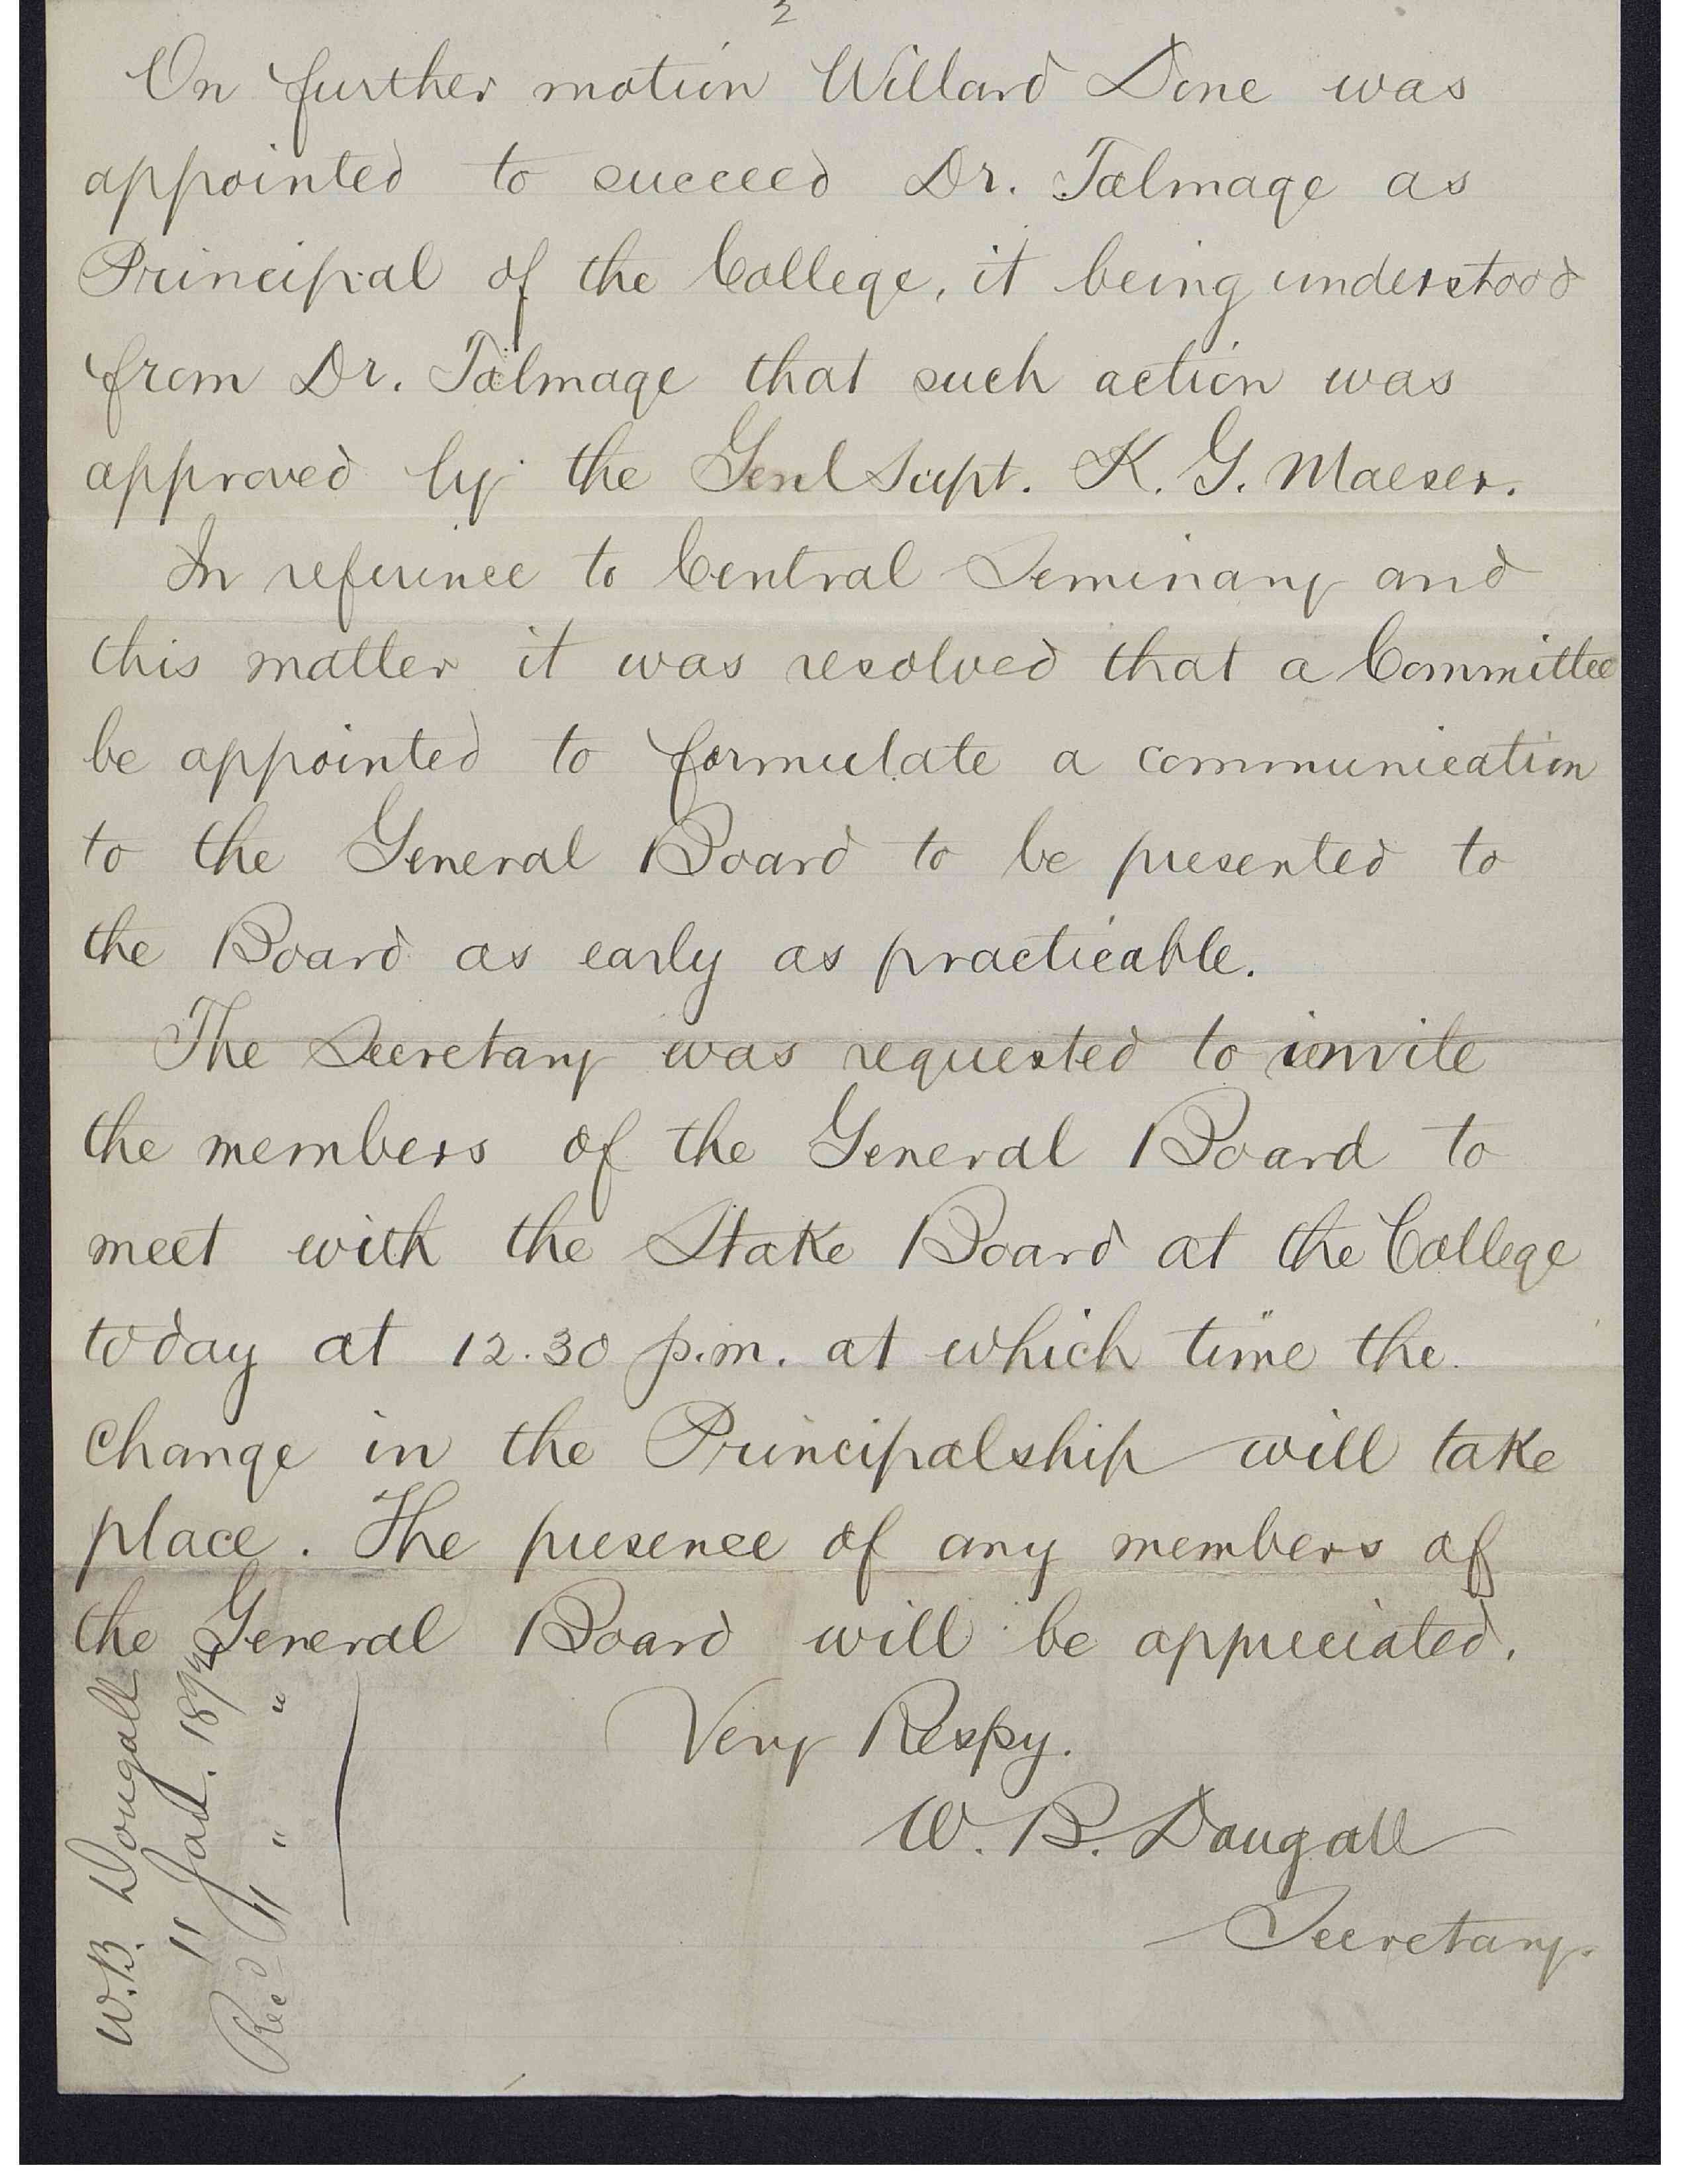 2
On further motion Willard Done was
appointed to succeed Dr. Talmage as
Principal of the College, it being understood
from Dr. Talmage that such action was
approved by the Genl Supt. K. G. Maeser.
In reference to Central Seminary and
this matter it was resolved that a Committee
be appointed to formulate a communication
to the General Board to be presented to
the Board as early as practicable.
The Secretary was requested to invite
the members of the General Board to
meet with the Stake Board at the College
today at 12.30 p.m. at which time the
change in the Principalship will take
place. The presence of any members of
the General Board will be appreciated.
Very Respy.
W. B. Dougall
Secretary.
W.B. Dougall
11 Jan. 1892
Rec'd 11 " "